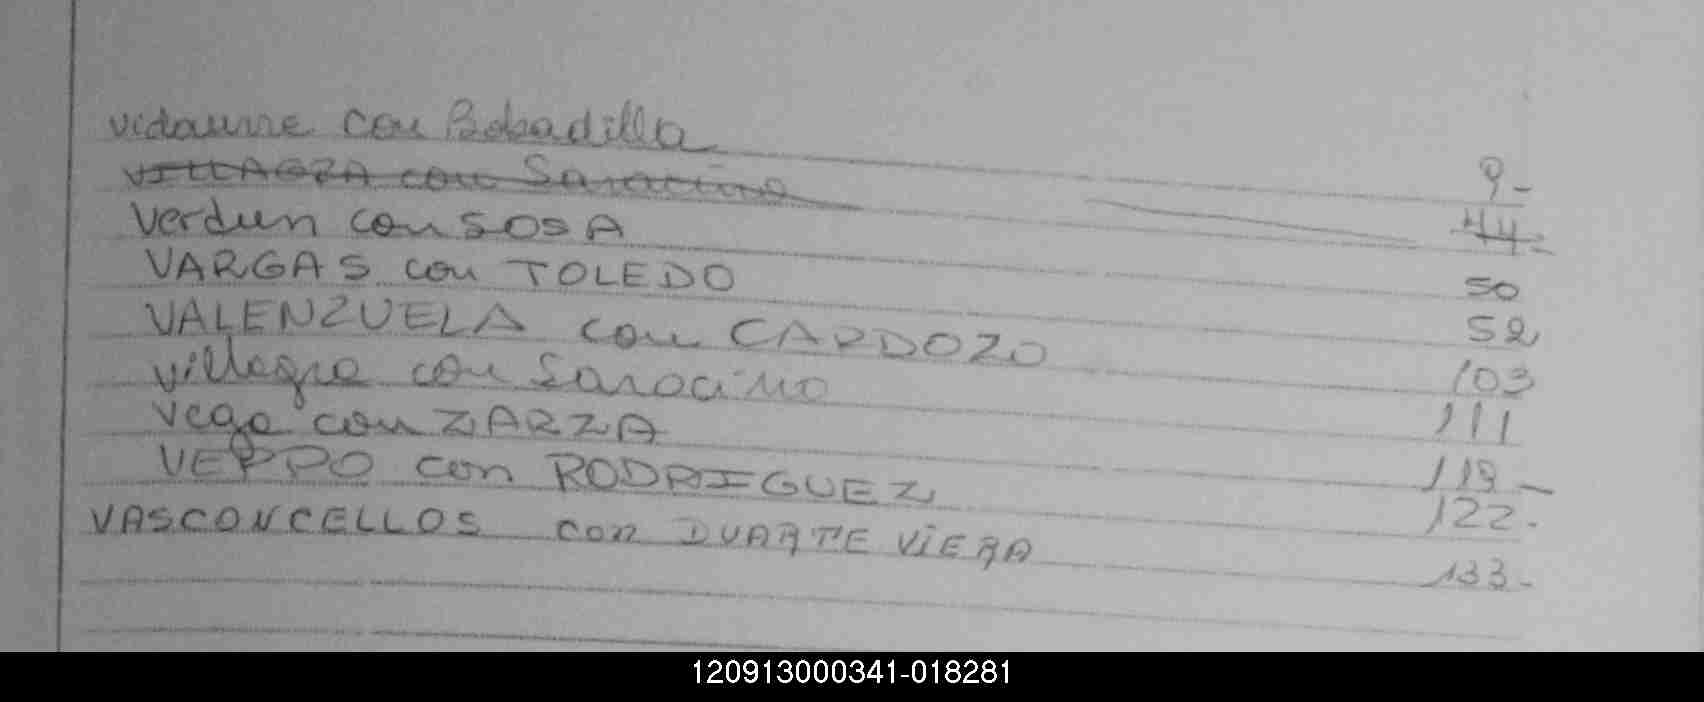 Vidaurre con Bobadilla 9-
VILLAGRA con Saracino 44-
Verdun con SOSA 50
VARGAS con TOLEDO 52
VALENZUELA con CARDOZO 103
Villagra con Saracino 111
Vega con ZARZA 119-
VERRO con RODRIGUEZ 122-
VASCONCELLOS con DUARTE VIERA 133-
120913000341-018281